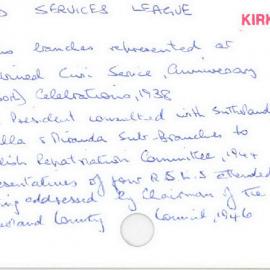 D SERVICES LEAGUE
KIRK
branches represented at
Civic Service, Anniversary
Celebrations, 1938
President consulted with Sutherland
& Miranda Sub-Branches to
Repatriation Committee, 1944
of four R S L S attended
addressed by Chairman of the
County Council, 1946